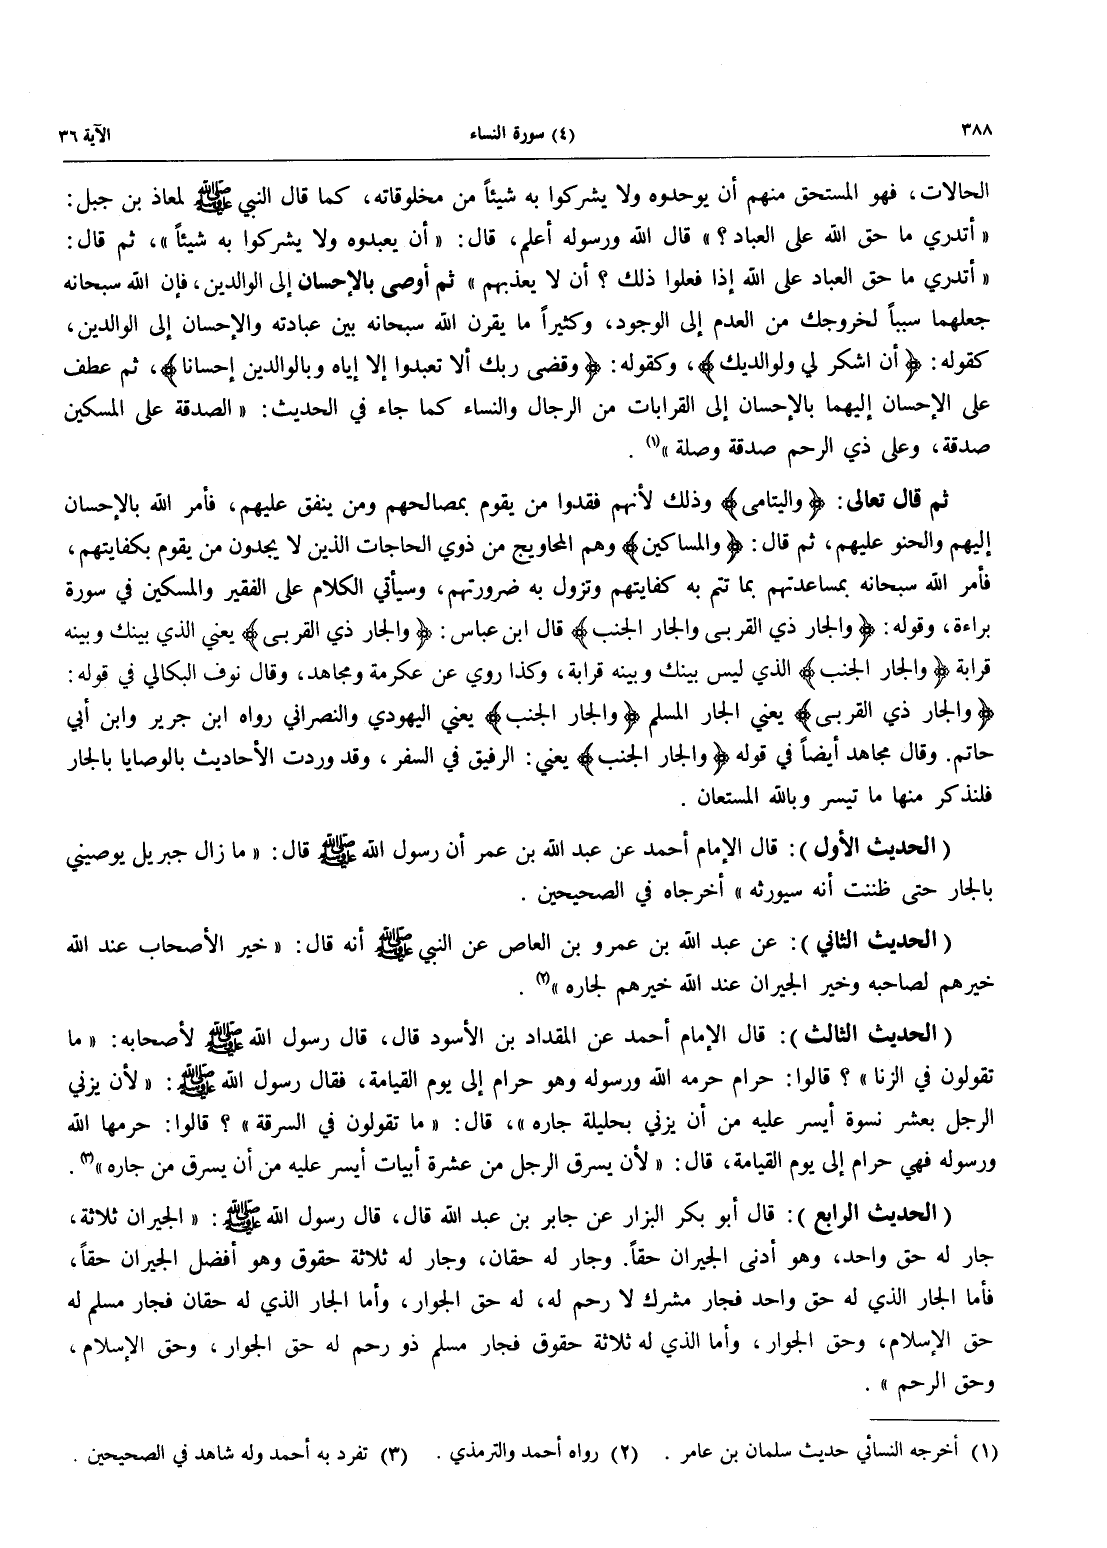 ٣٨٨ (٤) سورة النساء الآية ٣٦
الحالات، فهو المستحق منهم أن يوحدوه ولا يشركوا به شيئاً من مخلوقاته، كما قال النبي ﷺ لمعاذ بن جبل:
« أتدري ما حق الله على العباد؟ » قال الله ورسوله أعلم، قال: « أن يعبدوه ولا يشركوا به شيئاً »، ثم قال:
« أتدري ما حق العباد على الله إذا فعلوا ذلك ؟ أن لا يعذبهم » ثم أوصى بالإحسان إلى الوالدين، فإن الله سبحانه
جعلهما سبباً لخروجك من العدم إلى الوجود، وكثيراً ما يقرن الله سبحانه بين عبادته والإحسان إلى الوالدين،
كقوله: ﴿ أن اشكر لي ولوالديك ﴾، وكقوله: ﴿ وقضى ربك ألا تعبدوا إلا إياه وبالوالدين إحسانا ﴾، ثم عطف
على الإحسان إليهما بالإحسان إلى القرابات من الرجال والنساء كما جاء في الحديث: « الصدقة على المسكين
صدقة، وعلى ذي الرحم صدقة وصلة »(١) .
ثم قال تعالى: ﴿ واليتامى ﴾ وذلك لأنهم فقدوا من يقوم بمصالحهم ومن ينفق عليهم، فأمر الله بالإحسان
إليهم والحنو عليهم، ثم قال: ﴿ والمساكين ﴾ وهم المحاويج من ذوي الحاجات الذين لا يجدون من يقوم بكفايتهم،
فأمر الله سبحانه بمساعدتهم بما تتم به كفايتهم وتزول به ضرورتهم، وسيأتي الكلام على الفقير والمسكين في سورة
براءة، وقوله: ﴿ والجار ذي القربى والجار الجنب ﴾ قال ابن عباس: ﴿ والجار ذي القربى ﴾ يعني الذي بينك وبينه
قرابة ﴿ والجار الجنب ﴾ الذي ليس بينك وبينه قرابة، وكذا روي عن عكرمة ومجاهد، وقال نوف البكالي في قوله:
﴿ والجار ذي القربى ﴾ يعني الجار المسلم ﴿ والجار الجنب ﴾ يعني اليهودي والنصراني رواه ابن جرير وابن أبي
حاتم. وقال مجاهد أيضاً في قوله ﴿ والجار الجنب ﴾ يعني: الرفيق في السفر، وقد وردت الأحاديث بالوصايا بالجار
فلنذكر منها ما تيسر وبالله المستعان .
( الحديث الأول ): قال الإمام أحمد عن عبد الله بن عمر أن رسول الله ﷺ قال: « ما زال جبريل يوصيني
بالجار حتى ظننت أنه سيورثه » أخرجاه في الصحيحين .
( الحديث الثاني ): عن عبد الله بن عمرو بن العاص عن النبي ﷺ أنه قال: « خير الأصحاب عند الله
خيرهم لصاحبه وخير الجيران عند الله خيرهم لجاره »(٢) .
( الحديث الثالث ): قال الإمام أحمد عن المقداد بن الأسود قال، قال رسول الله ﷺ لأصحابه: « ما
تقولون في الزنا » ؟ قالوا: حرام حرمه الله ورسوله وهو حرام إلى يوم القيامة، فقال رسول الله ﷺ: « لأن يزني
الرجل بعشر نسوة أيسر عليه من أن يزني بحليلة جاره »، قال: « ما تقولون في السرقة » ؟ قالوا: حرمها الله
ورسوله فهي حرام إلى يوم القيامة، قال: « لأن يسرق الرجل من عشرة أبيات أيسر عليه من أن يسرق من جاره »(٣) .
( الحديث الرابع ): قال أبو بكر البزار عن جابر بن عبد الله قال، قال رسول الله ﷺ: « الجيران ثلاثة،
جار له حق واحد، وهو أدنى الجيران حقاً. وجار له حقان، وجار له ثلاثة حقوق وهو أفضل الجيران حقاً،
فأما الجار الذي له حق واحد فجار مشرك لا رحم له، له حق الجوار، وأما الجار الذي له حقان فجار مسلم له
حق الإسلام، وحق الجوار، وأما الذي له ثلاثة حقوق فجار مسلم ذو رحم له حق الجوار، وحق الإسلام،
وحق الرحم » .
(١) أخرجه النسائي حديث سلمان بن عامر . (٢) رواه أحمد والترمذي . (٣) تفرد به أحمد وله شاهد في الصحيحين .